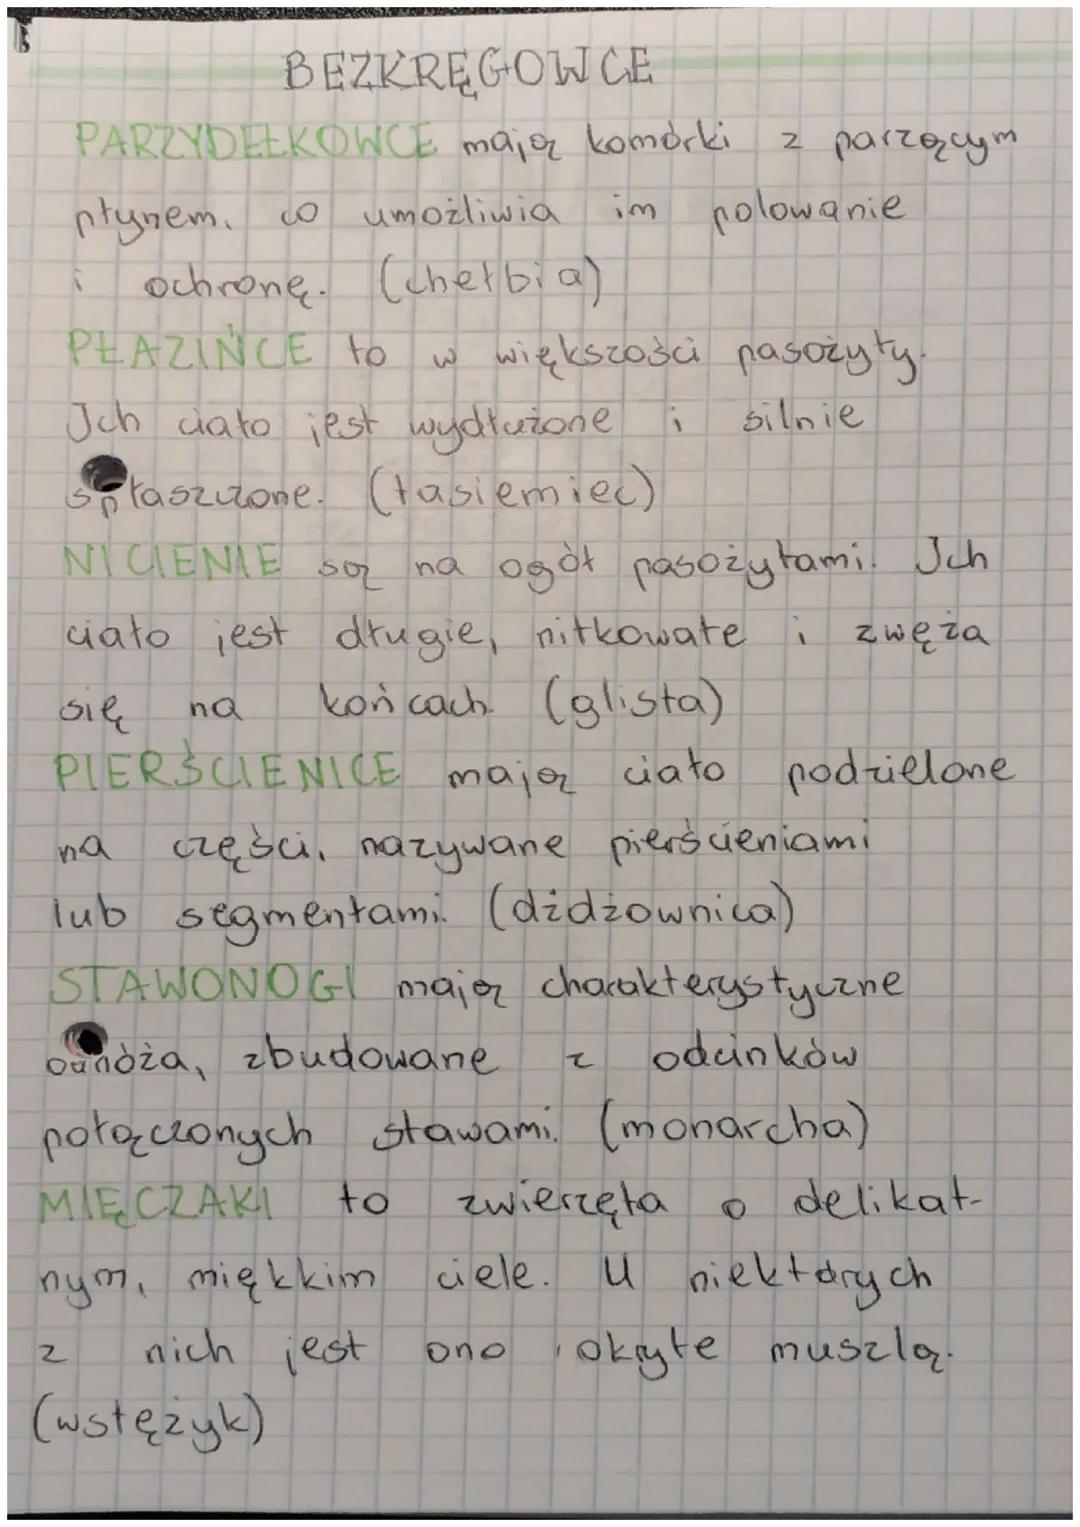 BEZKRĘGOWCE
PARZYDEŁKOWCE mają komórki z parzącym
płynem, co umożliwia im polowanie
i ochronę. (chełbia)
PŁAZIŃCE to w większości pasożyty.
Ich ciało jest wydłużone i silnie
spłaszczone. (tasiemiec)
NICIENIE są na ogół pasożytami. Ich
ciało jest długie, nitkowate i zwęża
się na końcach. (glista)
PIERŚCIENICE mają ciało podzielone
na części, nazywane pierścieniami
lub segmentami. (dżdżownica)
STAWONOGI mają charakterystyczne
odnóża, zbudowane z odcinków
połączonych stawami. (monarcha)
MIĘCZAKI to zwierzęta o delikat-
nym, miękkim ciele. U niektórych
z nich jest ono okryte muszlą.
(wstężyk)